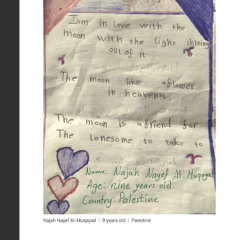 I am in love with the
moon with the light shining
out of it
The moon like a flower
in heavens
The moon is a friend for
The lonesome to talk to
Name: Najah Nayef Al-Muqayad
Age: nine years old.
Country: Palestine
Najah Nayef Al-Muqayad | 9 years old | Palestine